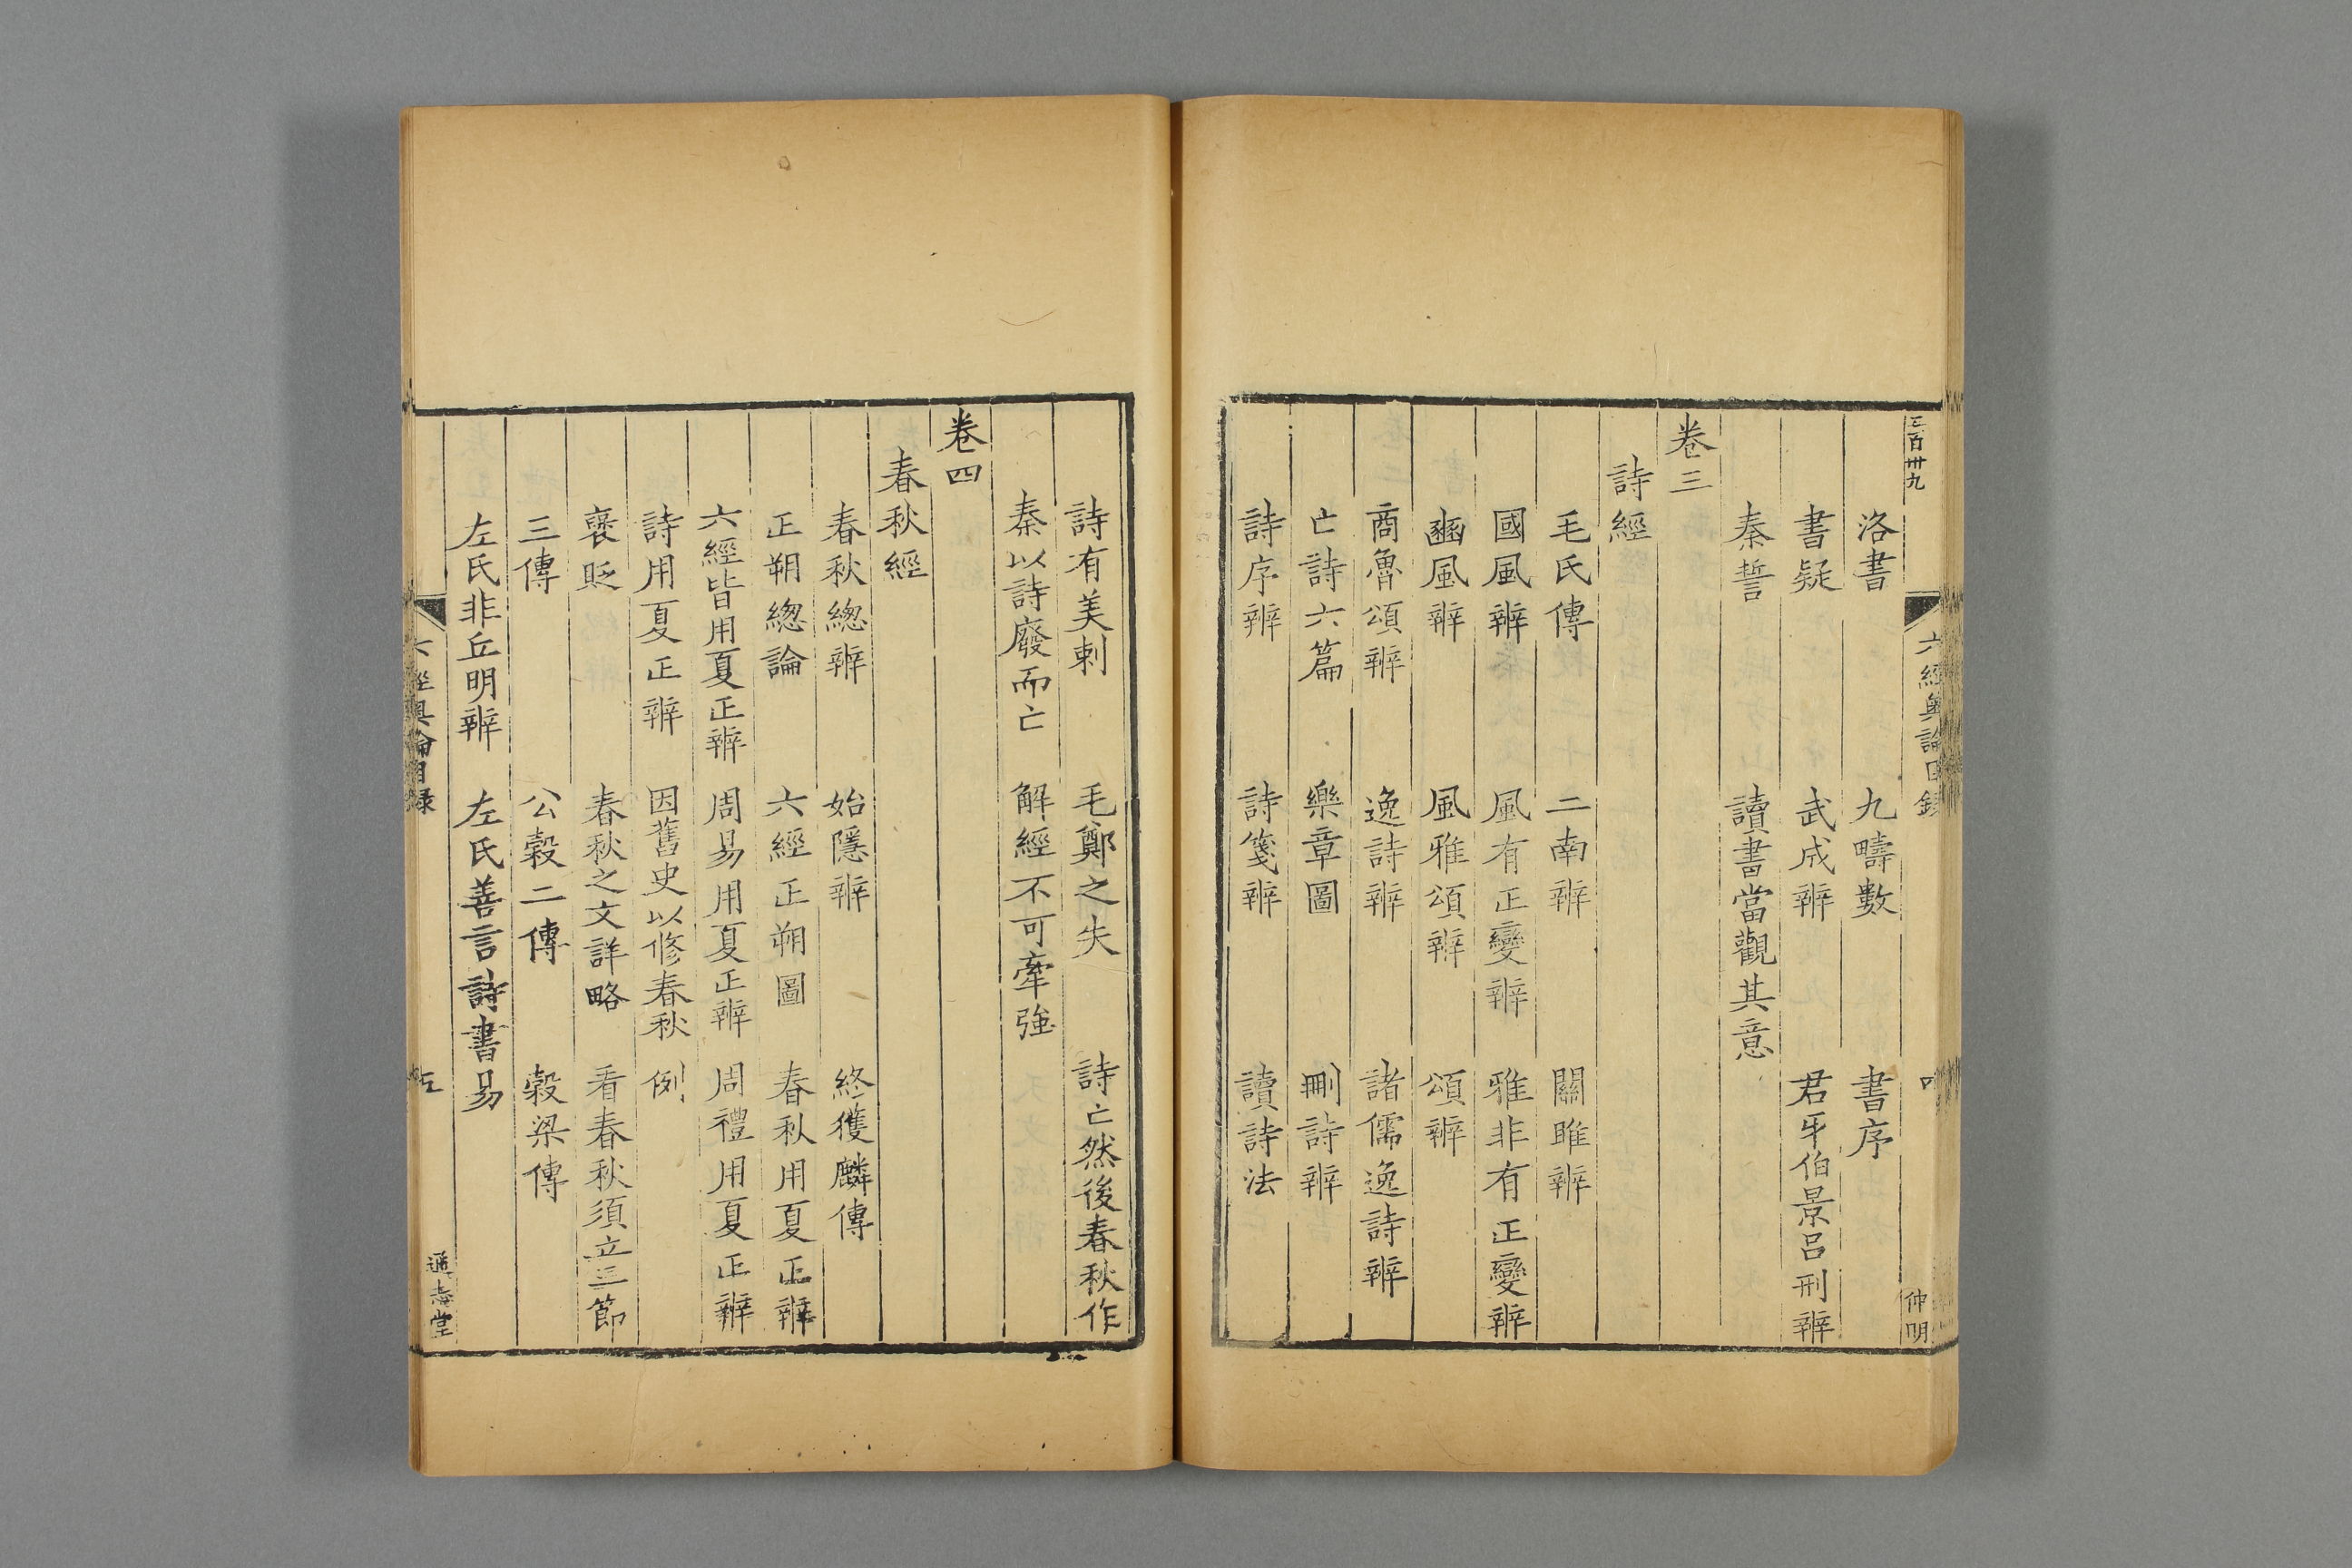 三百卅九
六經奥論目錄
仲明
洛書　九疇數　書序
書疑　武成辨　君牙伯景呂刑辨
秦誓　讀書當觀其意
卷三
詩經
毛氏傳　二南辨　關雎辨
國風辨　風有正變辨　雅非有正變辨
豳風辨　風雅頌辨　頌辨
商魯頌辨　逸詩辨　諸儒逸詩辨
亡詩六篇　樂章圖　刪詩辨
詩序辨　詩箋辨　讀詩法
詩有美刺　毛鄭之失　詩亡然後春秋作
秦以詩廢而亡　解經不可牽強
卷四
春秋經
春秋總辨　始隱辨　終獲麟傳
正朔總論　六經正朔圖　春秋用夏正辨
六經皆用夏正辨　周易用夏正辨　周禮用夏正辨
詩用夏正辨　因舊史以修春秋　例
褒貶　春秋之文詳略　看春秋須立三節
三傳　公穀二傳　穀梁傳
左氏非丘明辨　左氏善言詩書易
六經奥論目録
五
通志堂